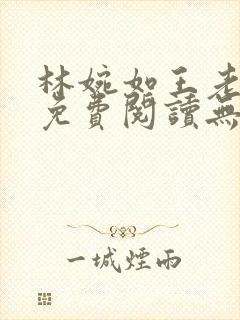 林婉如王老
免費閱讀無
一城煙雨